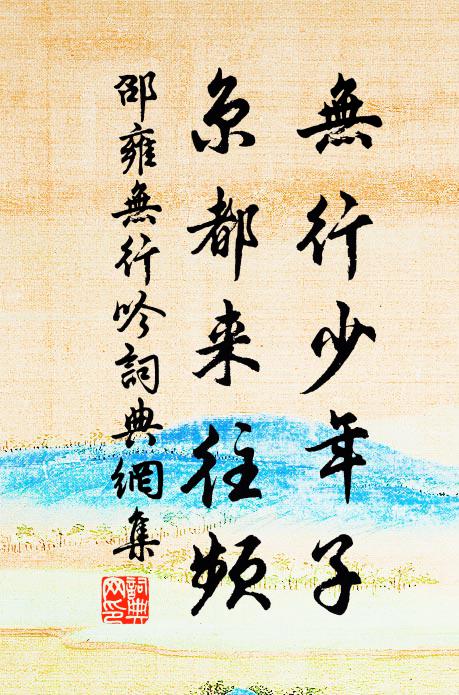 無行少年子
京都来往頻
邵雍無行吟詞典網集
詞典网印